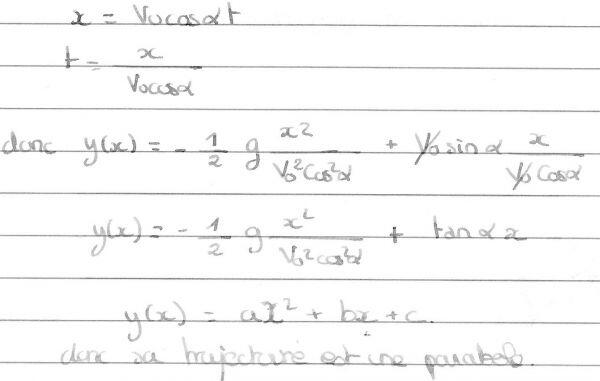 x = V0 cosα t
t = x / V0 cosα
donc y(x) = - 1/2 g x² / V0² cos²α + V0 sin α x / V0 cosα
y(x) = - 1/2 g x² / V0² cos²α + tan α x
y(x) = ax² + bx + c.
donc sa trajectoire est une parabole.